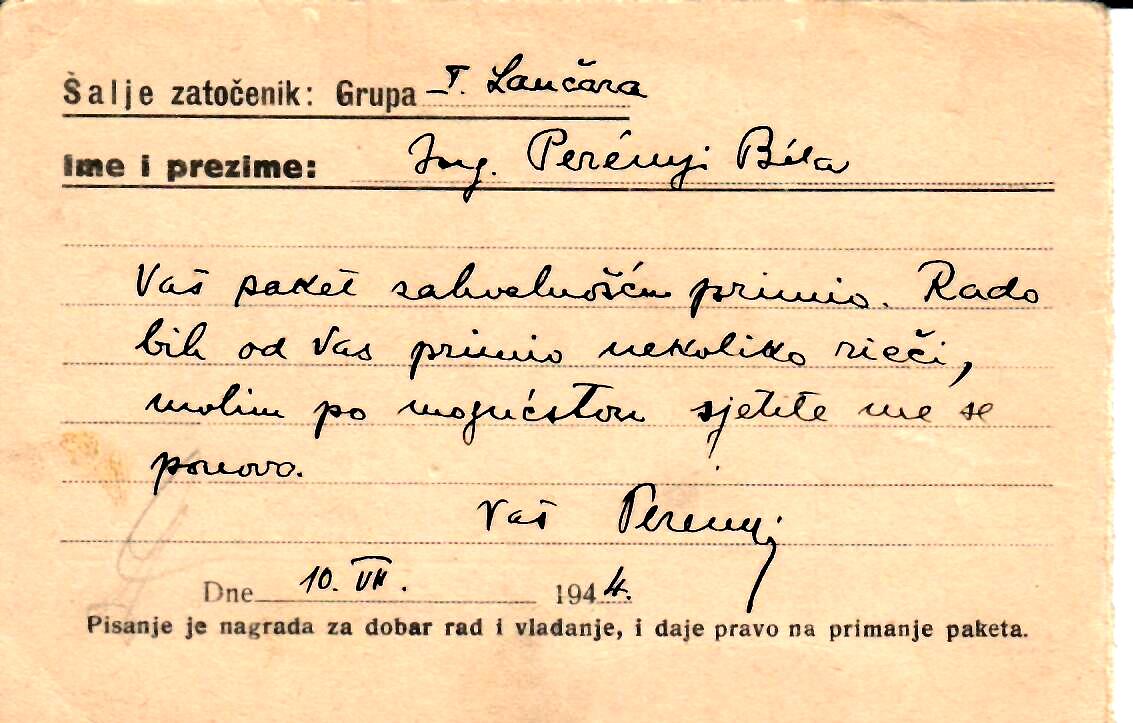 Šalje zatočenik: Grupa I. Lančara
Ime i prezime: Ing. Perényi Béla
Vaš paket sahvalnošćm primio. Rado
bih od Vas primio nekoliko rieči,
molim po mogućstvu sjetite me se
ponovo.
Vaš Perenyi
Dne 10. VII. 1944.
Pisanje je nagrada za dobar rad i vladanje, i daje pravo na primanje paketa.